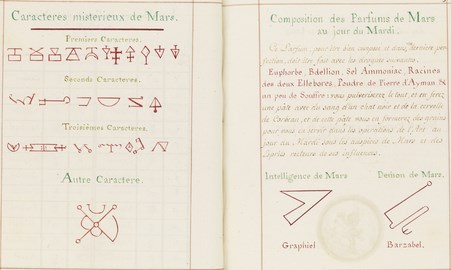 Caracteres misterieux de Mars.
Premiers Caracteres.
Seconds Caracteres.
Troisièmes Caracteres.
Autre Caractere.
Composition des Parfums de Mars
au jour du Mardi.
Ce Parfum, pour être bien composé et dans dernière per
fection, doit être fait avec les drogues suivantes.
Euphorbe, Bdellion, Sel Ammoniac, Racines
des deux Ellebores, Poudre de Pierre d'Ayman &
un peu de Souffre: vous pulveriserez le tout et en ferez
une pâte avec du sang d'un chat noir et de la cervelle
de Corbeau, et de cette pâte vous en formerez des grains
pour vous en servir dans les operations de l'Art au
jour du Mardi sous les auspices de Mars et des
Esprits recteurs de ses influences.
Intelligence de Mars
Demon de Mars.
Graphiel
Barzabel.